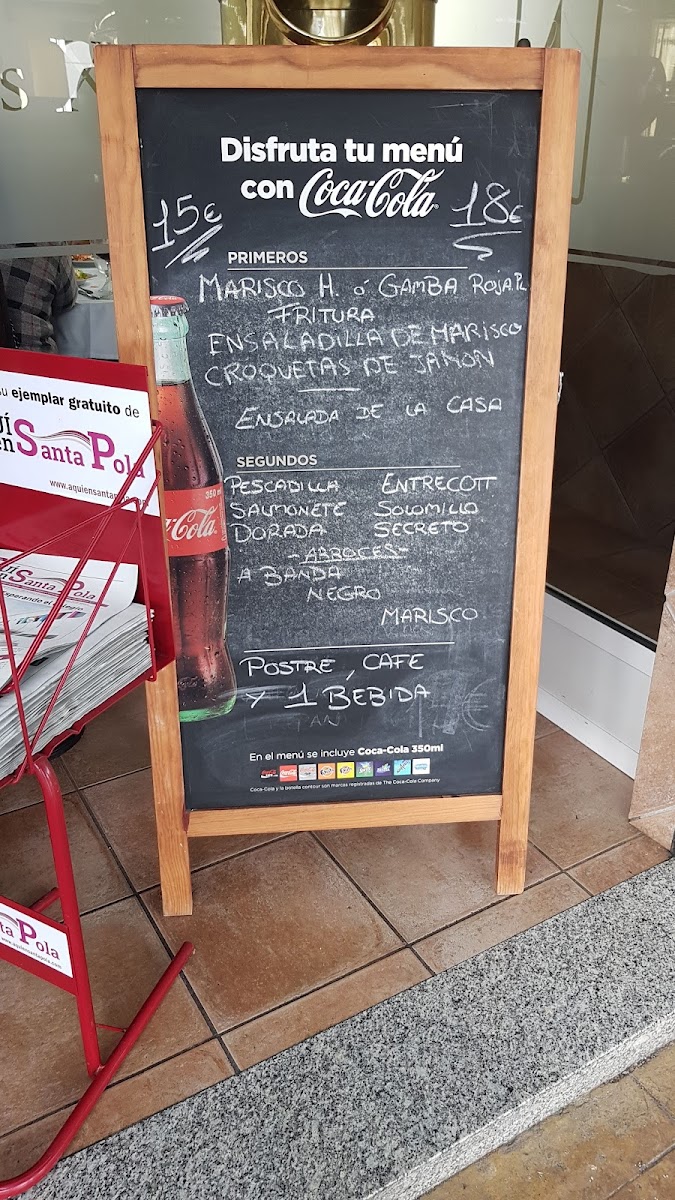 Disfruta tu menú
con Coca-Cola
15€
18€
PRIMEROS
MARISCO H. ó GAMBA ROJA PL
FRITURA
ENSALADILLA DE MARISCO
CROQUETAS DE JAMON
ENSALADA DE LA CASA
SEGUNDOS
PESCADILLA ENTRECOTT
SALMONETE SOLOMILLO
DORADA SECRETO
-ARROCES-
A BANDA
NEGRO
MARISCO
POSTRE, CAFE
Y 1 BEBIDA
En el menú se incluye Coca-Cola 350ml
Coca-Cola y la botella contour son marcas registradas de The Coca-Cola Company
350 ml
Coca-Cola
su ejemplar gratuito de
en Santa Pola
Santa Pola
ta Pola